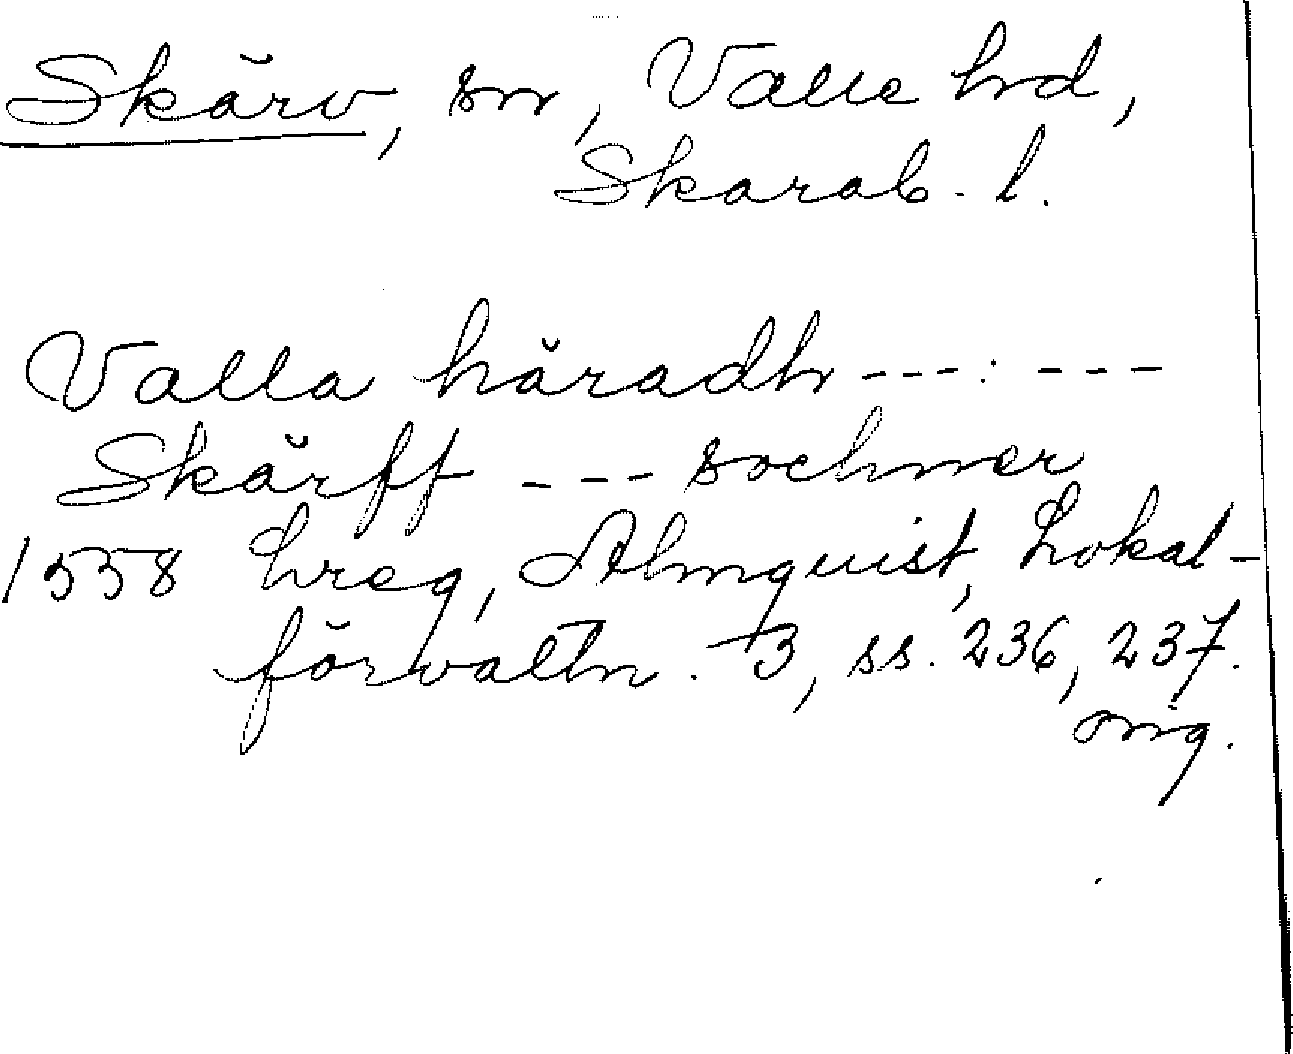 Skärv, sn, Valle hd,
Skarab. l.
Valla häradh ---: ---
Skärff --- sochner
1558 hreg, Almquist, Lokal-
förvaltn. 3, ss. 236, 237.
orig.